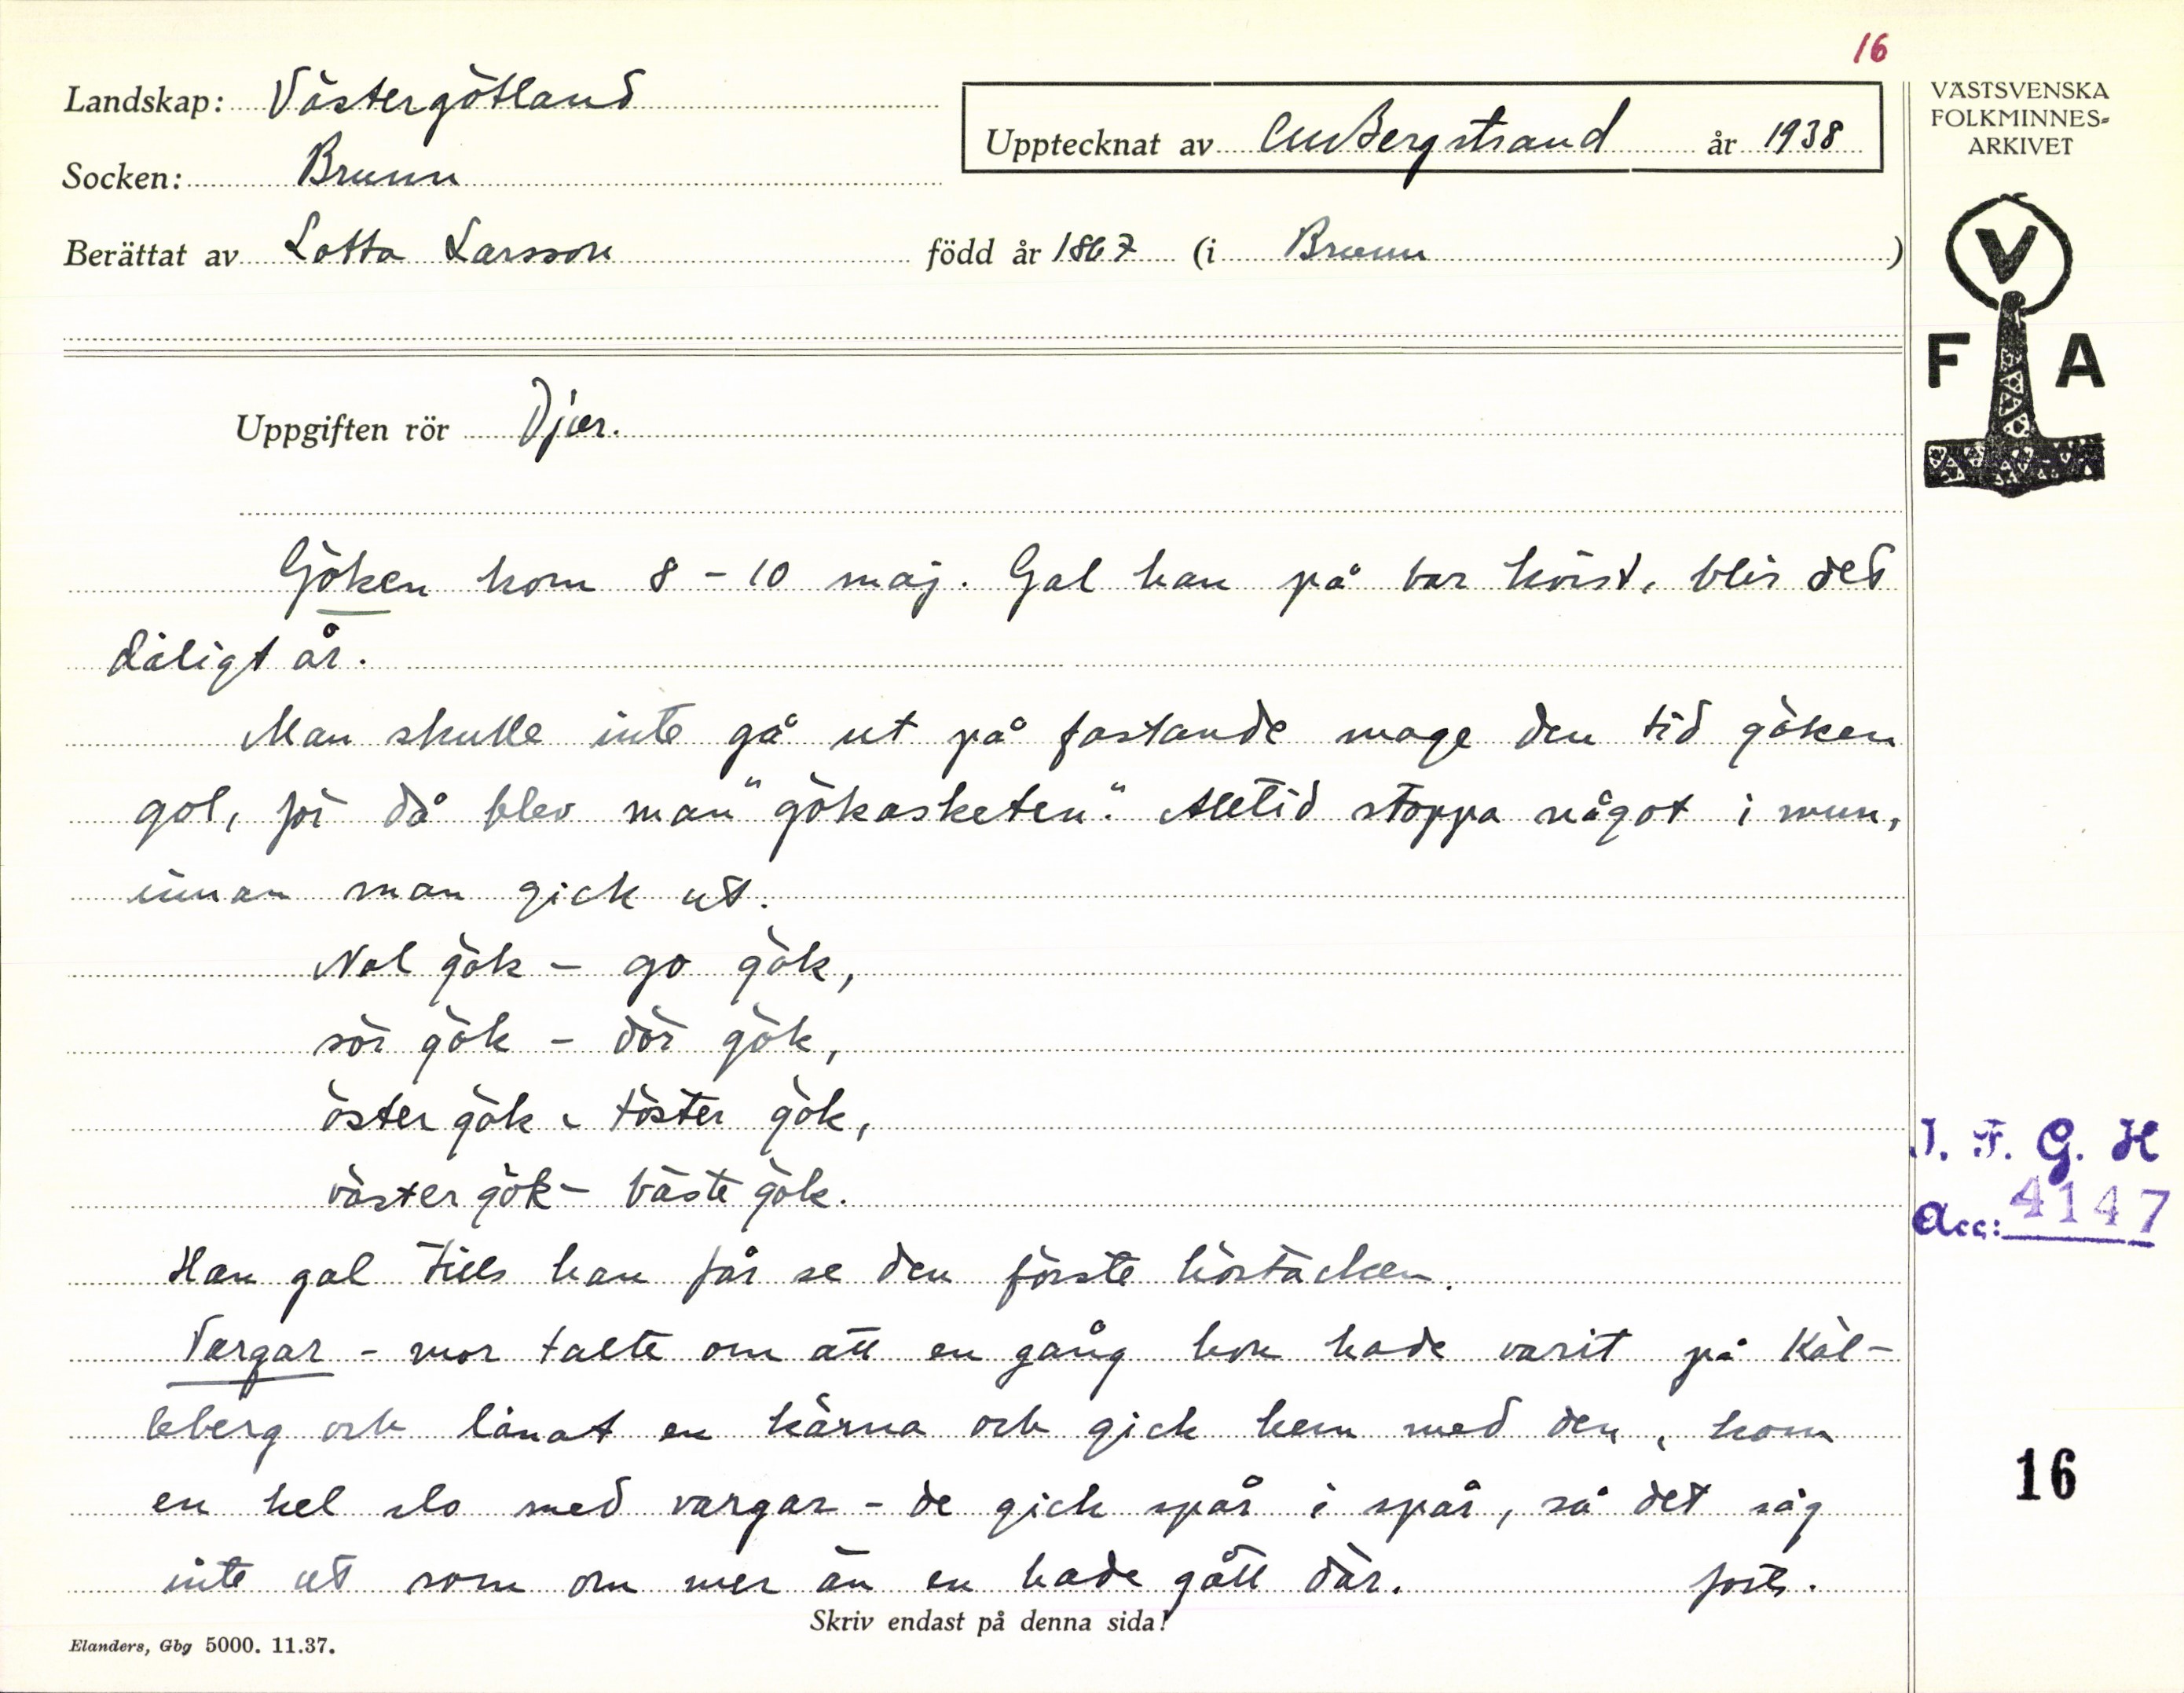 16
Landskap: Västergötland
Upptecknat av CM Bergstrand år 1938
Socken: Brunn
Berättat av Lotta Larsson född år 1867 (i Brunn )
VÄSTSVENSKA
FOLKMINNES-
ARKIVET
V
F A
Uppgiften rör Djur.
Göken kom 8 - 10 maj. Gal han på bar kvist, blir det
dåligt år.
Man skulle inte gå ut på fastande mage den tid göken
gol, för då blev man "gökasketen". Alltid stoppa något i mun,
innan man gick ut.
Nol gök - go gök,
sör gök - dör gök,
öster gök - töster gök,
väster gök - bäste gök.
Han gal tills han får se den förste höstacken.
Vargar - mor talte om att en gång hon hade varit på Käl-
leberg och lånat en kärna och gick hem med den, kom
en hel flo med vargar - de gick spår i spår, så det såg
inte ut som om mer än en hade gått där. forts.
Skriv endast på denna sida!
Elanders, Gbg 5000. 11.37.
I. F. G. H
Acc: 4147
16